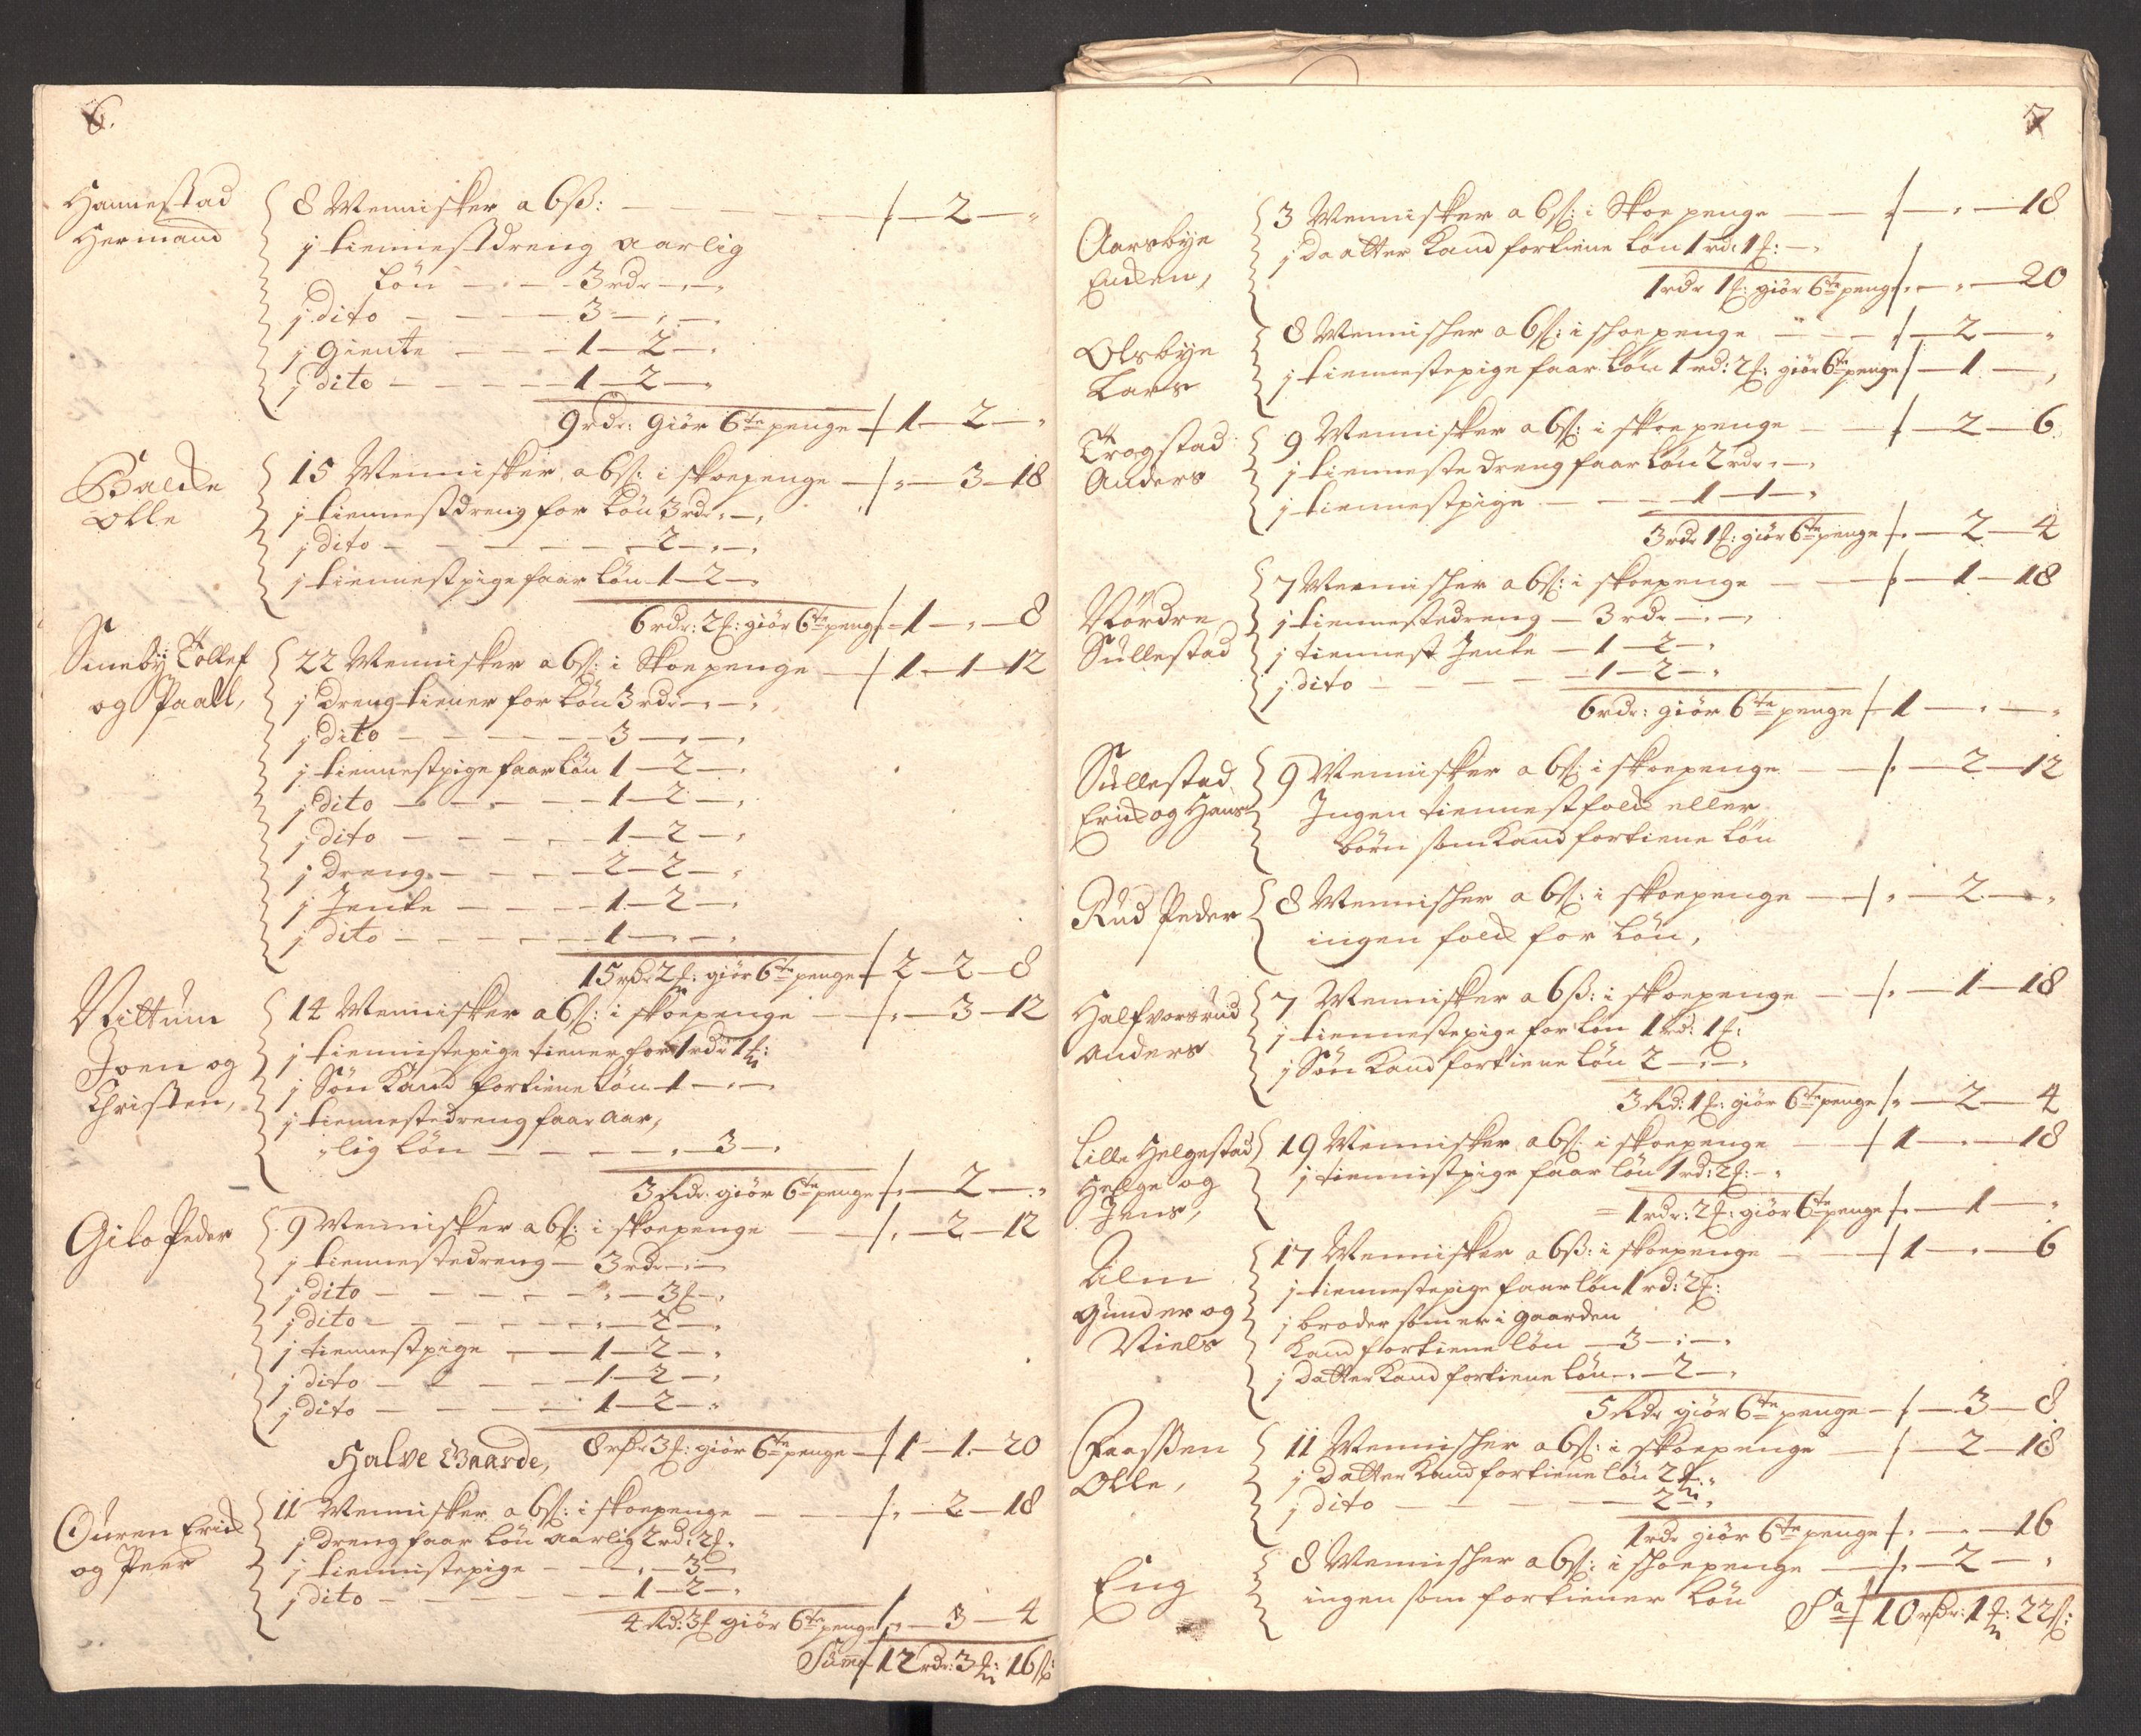 6.
Hannestad
Hermand
8 Mennisker a 6ß: — 2 — "
j tiennestdreng aarlig
Løn — 3 rdr — " —
j dito — 3 — " —
j giente — 1 — 2 — "
j dito — 1 — 2 — "
9 rdr: giör 6te penge 1 — 2 — "
Balche
Olle
15 Mennisker a 6ß: i skoepenge — " — 3 — 18
j tiennestdreng for Løn 3 rdr " — "
j dito — 2 — " — "
j tiennestpige faar Løn 1 — 2 — "
6 rdr: 2 ʄ: giör 6te penge 1 — " — 8
Smeby Tollef
og Paall,
22 Mennisker a 6ß: i Skoepenge — 1 — 1 — 12
j dreng tiener for Løn 3 rdr — " — "
j dito — 3 — " — "
j tiennestpige faar Løn 1 — 2 — "
j dito — 1 — 2 — "
j dito — 1 — 2 — "
j dreng — 2 — 2 — "
j Jente — 1 — 2 — "
j dito — 1 — " — "
15 rdr 2 ʄ: giör 6te penge 2 — 2 — 8
Nittum
Joen og
Christen,
14 Mennisker a 6ß: i skoepenge — " — 3 — 12
j tiennistepige tiener for 1 rdr 1 ʄ:
j Søn Kand fortiene Løn 1 — " —
j tiennestedreng faar aar,
lig Løn — " — 3 — "
3 Rdr: giör 6te penge " — 2 — "
Gilo Peder
9 Mennisker a 6ß: i skoepenge — " — 2 — 12
j tiennestedreng — 3 rdr — " —
j dito — " — 3 ʄ — "
j dito — " — 2 — "
j tiennestpige — 1 — 2 — "
j dito — 1 — 2 — "
j dito — 1 — 2 — "
8 rdr 3 ʄ: giör 6te penge — 1 — 1 — 20
Halve Gaarde,
Ouren Erich
og Peer
11 Mennisker a 6ß: i skoepenge — " — 2 — 18
j dreng faar Løn aarlig 2 rd: 2 ʄ "
j tiennistepige — " — 3 —
j dito — 1 — 2 — "
4 Rd: 3 ʄ giör 6te penge " — 3 — 4
Suma 12 rdr: 3 ʄ: 16 ß:
7
Aarsbye
Enchen,
3 Mennisker a 6ß: i Skoepenge — " — " — 18
j daatter Kand fortiene Løn 1 rd: 1 ʄ: — "
1 rdr 1 ʄ: giör 6te penge " — " — 20
Olsbye
Lars
8 Mennisker a 6ß: i skoepenge — " — 2 — "
j tiennestepige faar Løn 1 rd: 2 ʄ: giör 6te penge — 1 — "
Trogstad
Anders
9 Mennisker a 6ß: i skoepenge — 2 — 6
j tienneste dreng faar Løn 2 rdr " — "
j tiennestpige — 1 — 1 — "
3 rdr 1 ʄ: giör 6te penge " — 2 — 4
Nördre
Süllestad
7 Mennisker a 6ß: i skoepenge — " — 1 — 18
j tiennestedreng — 3 rdr — " — "
j tiennest Jente — 1 — 2 — "
j dito — 1 — 2 — "
6 rdr: giör 6te penge 1 — " — "
Süllestad
Erich og Hans
9 Mennisker a 6ß: i skoepenge — " — 2 — 12
Ingen tiennestfolch eller
börn som Kand fortiene Løn
Rud Peder
8 Mennisker a 6ß: i skoepenge — " — 2 — "
ingen folch for Løn,
Halfvorsrud
Anders
7 Mennisker a 6ß: i skoepenge — " — 1 — 18
j tiennestepige for Løn 1 rd: 1 ʄ:
j Søn Kand fortiene Løn 2 — " — "
3 Rd: 1 ʄ: giör 6te penge " — 2 — 4
Lille Helgestad
Helge og
Jens,
19 Mennisker a 6ß: i skoepenge — 1 — " — 18
j tiennistpige faar Løn 1 rd: 2 ʄ: — "
1 rdr: 2 ʄ: giör 6te penge " — 1 — "
Alm
Gunder og
Niels
17 Mennisker a 6ß: i skoepenge — 1 — " — 6
j tiennestepige faar Løn 1 rd: 2 ʄ:
j broder som er i gaarden
Kand fortiene Løn — 3 — : — "
j datter Kand fortiene Løn " — 2 — "
5 Rdr giör 6te penge — " — 3 — 8
Olle,
11 Mennisker a 6ß: i skoepenge — " — 2 — 18
j datter Kand fortiene Løn 2 ʄ: "
j dito — 2 — "
1 rdr giör 6te penge " — " — 16
Eng
8 Mennisker a 6ß: i skoepenge — " — 2 — "
ingen som fortiener Løn
Sa 10 rdr: 1 ʄ: 22 ß: